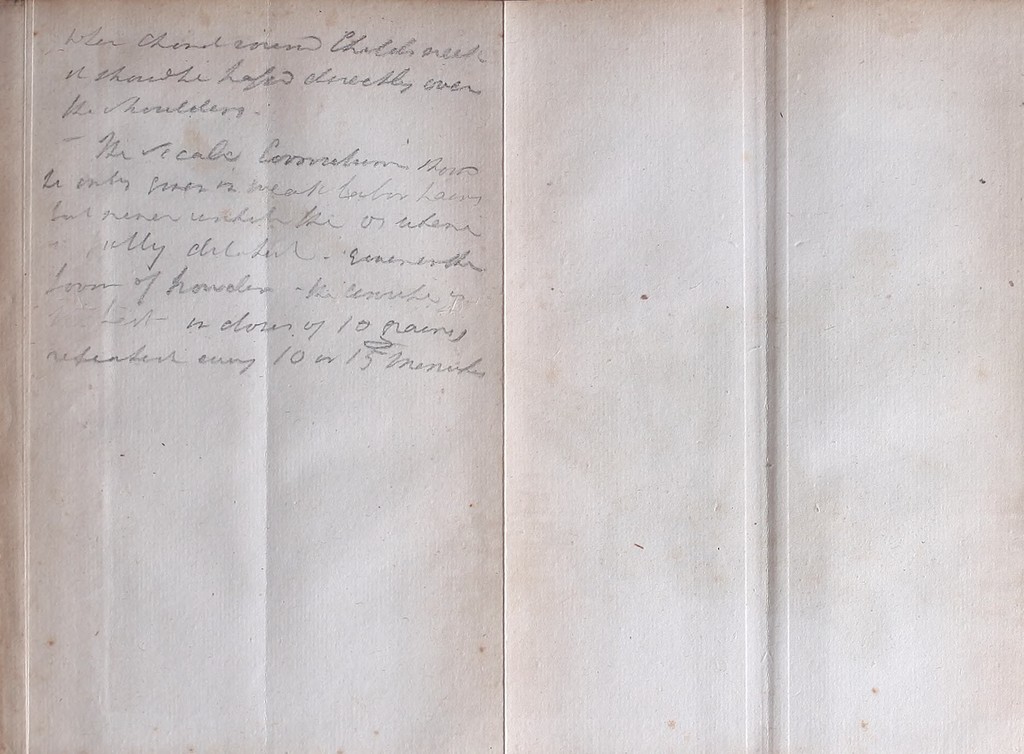 when chord round Childs neck
it should be passed directly over
the shoulders.
— The Secale Cornutum shoud
be only given in weak labor pains
but never until the os uteri
is fully dilated. given in the
form of powder - the
best in doses of 10 grains
repeated every 10 or 15 minutes